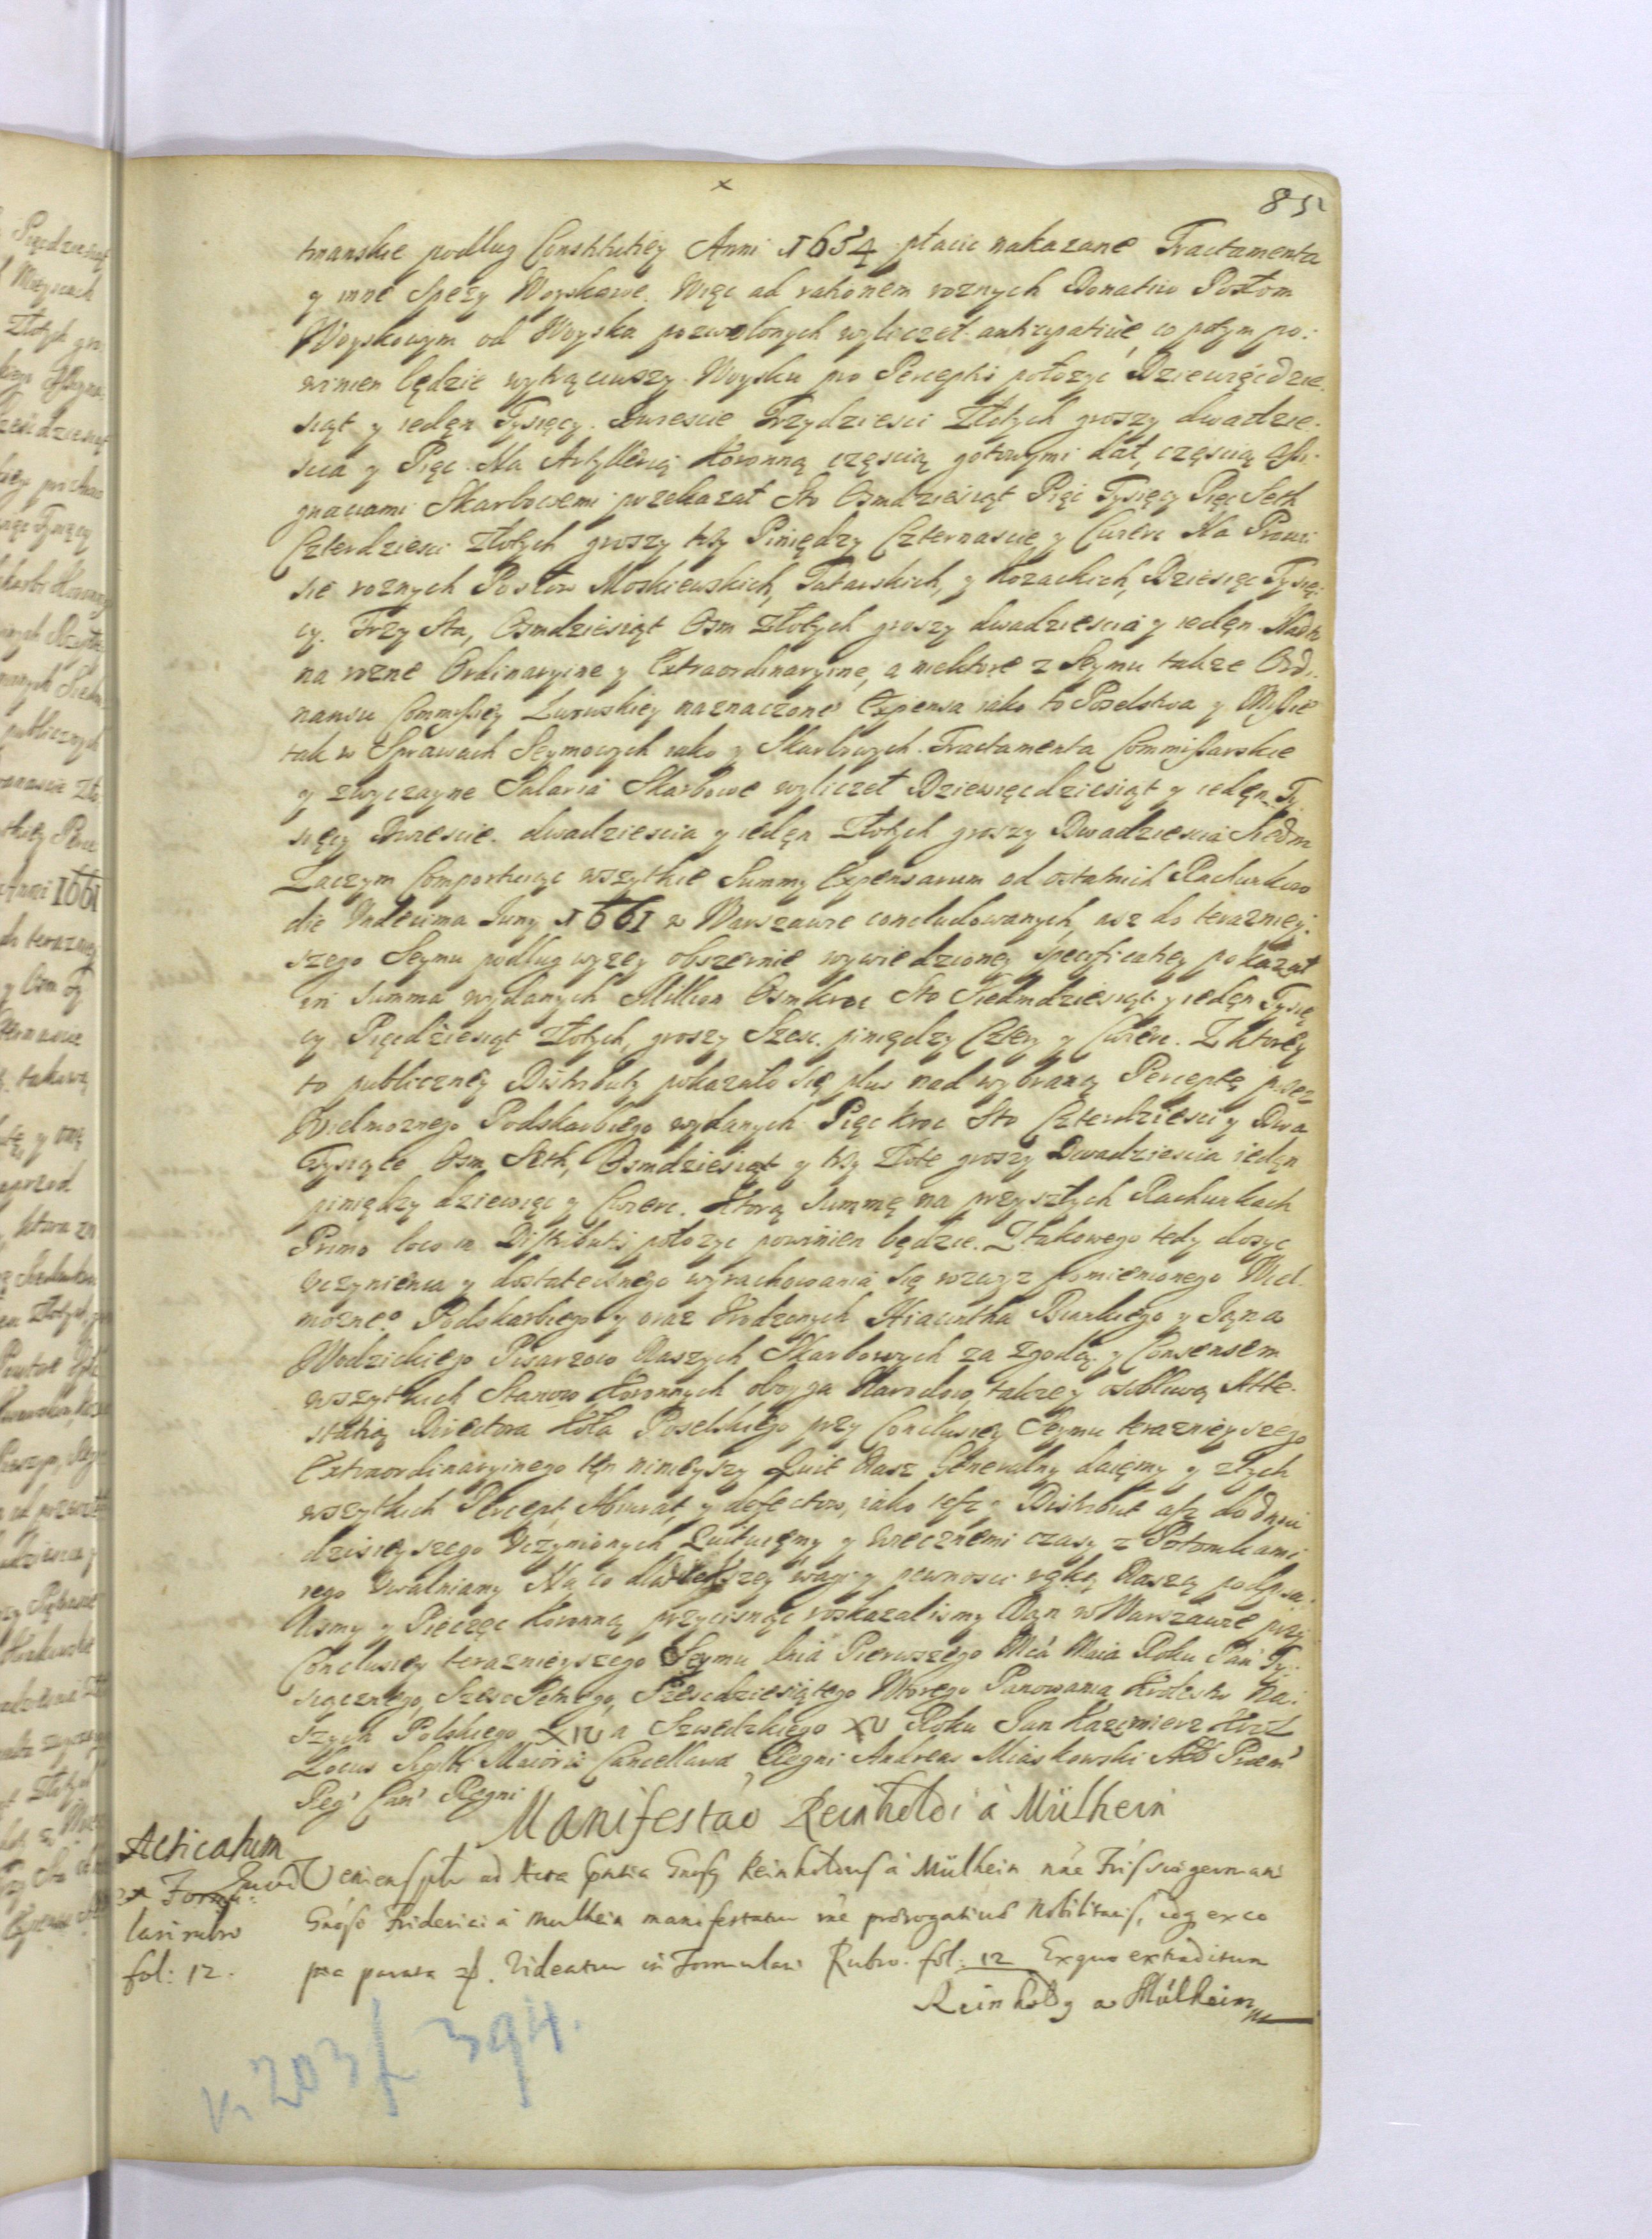 85
tmanskie podług Constitutiey Anni 1654 płacic nakazane Tractamenta
y inne Spezy Woyskowe. Więc ad rationem roznych Donatiw Posłom
Woyskowym od Woyska pozwolonych wyliczeł anticipative, co potym po:
winien będzie wytrąciwszy Woysku pro Percepti połozyc Dziewięcdzie
siąt y ieden Tysięcy. Dwiescie Trzydziesci Złotych groszy dwadzie.
scia y Pięc. Na Artyllerią Koronną częscią gotowymi dał, częscią Assi.
gnaciami Skarbowemi przekazał Sto Osmdziesiąt Pięc Tysięcy Pięc Seth
Czterdziesci Złotych groszy trzy Piniędzy Czternascie y Cwierc Na Prowi
sie roznych Posłow Moskiewskich, Tatarskich, y Kozackich, Dziesięc Tysię
cy. Trzy Sta, Osmdziesiąt Osm Złotych groszy dwadziescia y ieden. Nadto
na rozne Ordinaryine y Extraordinaryine, a niektore z Seymu takze Ordi.
nansu Commissiey Lwowskiey naznaczone Expensa iako to Poselstwa y Missie
tak w Sprawach Seymowych iako y Skarbowych. Tractamenta Commissarskie
y zwyczayne Salaria Skarbowe wyliczeł Dziewięcdziesiąt y ieden Ty
sięcy Dwiescie. dwadziescia y ieden Złotych groszy Dwadziescia Siedm
Zaczym Comportuiąc wszytkie Summy Expensarum od ostatnich Rachunkow
die Undecima Juny 1661 w Warszawie concludowanych, asz do terazniey:
szego Seymu podług wyzey obszernie wywiedzioney Specificatiey pokazał
in Summa wydanych Million Osmkroc Sto Siedmdziesiąt y ieden Tysię
cy Pięcdziesiąt Złotych, groszy Szesc. piniędzy Cztery y Cwierc. Z ktorey
to publiczney Distributy pokazało się plus nad wybraną Perceptę przez
Wielmoznego Podskarbiego wydanych Pięc kroc Sto Czterdziesci y Dwa
Tysiące Osm Seth, Osmdziesiąt y trzy Złote groszy Dwadziescia ieden
piniędzy dziewięc y Cwierc. Ktorą Summę na przyszłych Rachunkach
Primo loco in Distributi połozyc powinien będzie. Z takowego tedy dosyc
Uczynienia y dostatecznego wyrachowania się wzwyz pomienionego Wiel.
mozneo Podskarbiego y oraz Urodzonych Hiacintha y Jana
Wodzickiego Pisarzow Naszych Skarbowych za zgodą y Consensem
wszytkich Stanow Koronnych oboyga Narodow, takzey osobliwą Atte.
statią Directora Koła Poselskiego przy Conclusiey Seymu teraznieyszego
Extraordinaryinego ten ninieyszy Quit Nasz Generalny daięmy y z tych
wszytkich Percept, y defectow, iako tesz Distribut asz do dnia
dzisieyszego Uczynionych Quituięmy y wiecznemi czasy z Potomkami
iego Uwalniamy Na co dla większey wagi y pewnosci ręką Naszą podpisa
lismy y Pieczęc Koronną przycisnąc roskazalismy Dan w Warszawie przy
Conclusiey teraznieyszego Seymu dnia Pierwszego Mca Maia Roku Pan Ty
siącznego, Szesc Setnego, Szescdziesiątego Wtorego Panowania Krolestw Na:
szych Polskiego XIV a Szwedzkiego XV Roku Jan Kazimierz Krol
Locus Sigilli Maioris Cancellariae Regni Andreas Miaskowski Abb Prem
Reg Can Regni
Manifestao Reinholdi à Mülhein
Acticatum
ex Formu:
lari rubro
fol: 12.
Veniens ad Acta Gnosg Reinholdus à Mülhein Fris sui germani
Gnoso Friderici à Mulhein manifestatur prorogativis Nobilitatis, eog ex eo
pse parata Videatur in Formulari Rubro. fol: 12 Exquo extraditum
Reinholdg a Mülheim
K. 203 f 394.